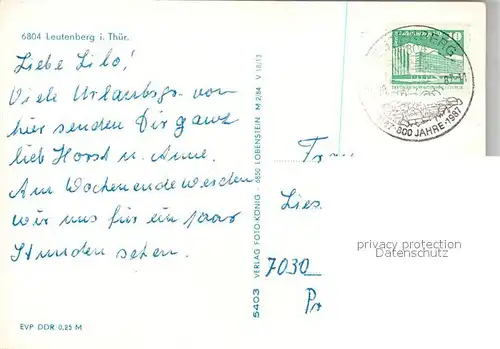 6804 Leutenberg i. Thür.
Liebe Lilo!
Viele Urlaubsgr. von
hier senden Dir ganz
lieb Horst u. Anne.
Am Wochenende werden
wir uns für ein paar
Stunden sehen.
EVP DDR 0,25 M
5403 VERLAG FOTO-KÖNIG · 6850 LOBENSTEIN M 2/84 V 18/13
10
800 JAHRE · 1987
Lies
7030
privacy protection
Datenschutz